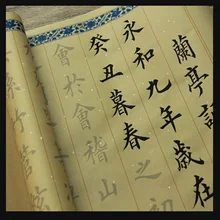 蘭亭
永和九年歲在
癸丑暮春之初
會於會稽山